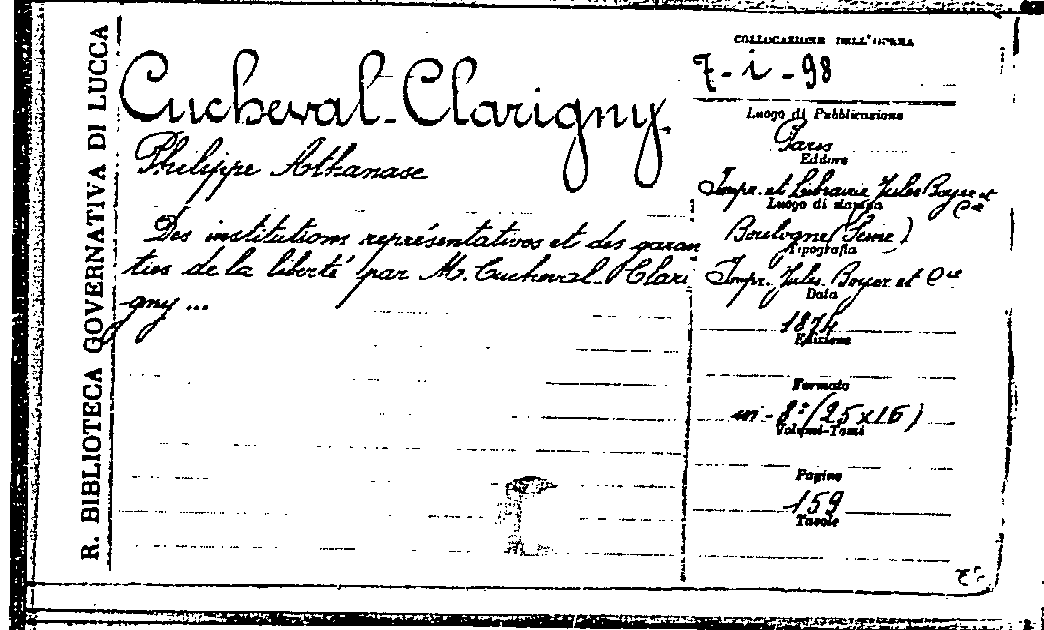 R. BIBLIOTECA GOVERNATIVA DI LUCCA
Cucheval-Clarigny
Philippe Athanase
Des institutions représentatives et des garan
ties de la liberté par M. Cucheval-Clari
gny ...
COLLOCAZIONE DELL'OPERA
7-i-98
Luogo di Pubblicazione
Paris
Editore
Impr. et Librairie Jules Boyer et Cie
Luogo di stampa
Boulogne (Seine)
Tipografia
Impr. Jules Boyer et Cie
Data
1874
Edizione
Formato
in-8° (25x16)
Volumi-Tomi
Pagine
159
Tavole